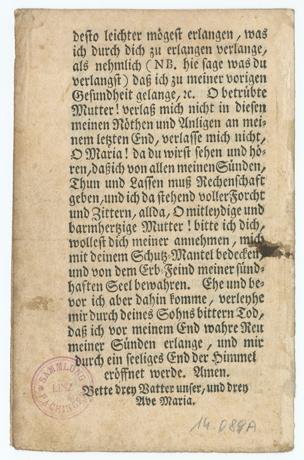 desto leichter mögest erlangen, was
ich durch dich zu erlangen verlange,
als nehmlich (NB. hie sage was du
verlangst) daß ich zu meiner vorigen
Gesundheit gelange, ꝛc. O betrübte
Mutter! verlaß mich nicht in diesen
meinen Nöthen und Anligen an mei-
nem letzten End, verlasse mich nicht,
O Maria! da du wirst sehen und hö-
ren, daß ich von allen meinen Sünden,
Thun und Lassen muß Rechenschaft
geben, und ich da stehend voller Forcht
und Zittern, allda, O mitleydige und
barmhertzige Mutter! bitte ich dich,
wollest dich meiner annehmen, mich
mit deinem Schutz-Mantel bedecken,
und von dem Erb-Feind meiner sünd-
haften Seel bewahren. Ehe und be-
vor ich aber dahin komme, verleyhe
mir durch deines Sohns bittern Tod,
daß ich vor meinem End wahre Reu
meiner Sünden erlange, und mir
durch ein seeliges End der Himmel
eröffnet werde. Amen.
Bette drey Vatter unser, und drey
Ave Maria.
SAMMLUNG
LINZ
PACHINGER
14.089A